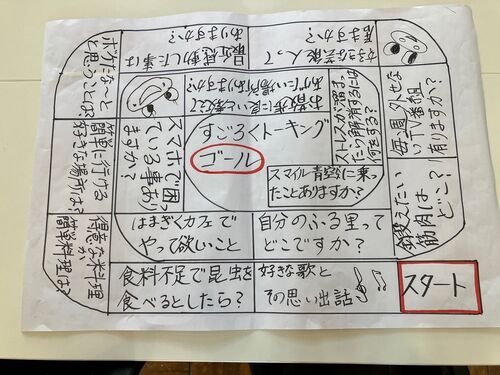 すごろくトーキング
ゴール
スタート
好きな歌と
その思い出話
食料不足で昆虫を
食べるとしたら?
得意な料理
か
簡単料理は?
簡単に行ける
好きな場所は?
ボケたな〜と
思うことは?
最近感動した事は
ありますか?
好きな芸能人って
居ますか?
毎週外せな
いTV番組
有りますか?
鍛えたい
筋肉は
どこ?
自分のふる里って
どこですか?
はまぎくカフェで
やって欲しいこと
スマホで困っ
ている事あり
ますか?
お散歩に良いと教えて
あげたい場所ありますか?
ストレスが溜まっ
たら解消するには
何をする?
スマイル青空に乗っ
たことありますか?